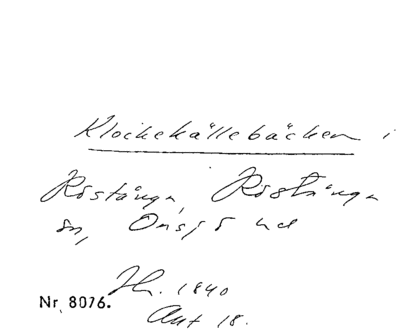 Klockekällebäcken i
Röstånga, Röstånga
sn, Onsjö hd
Th. 1840
Akt 18.
Nr. 8076.